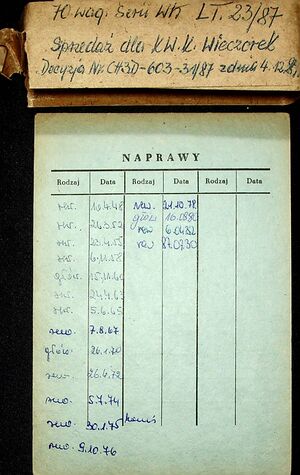 70 wag. Serii Wk LT. 23/87
Sprzedaż dla KW.K. Wieczorek
Decyzja Nr CH3D-603-31/87 z dnia 4.12.87
NAPRAWY
Rodzaj Data Rodzaj Data Rodzaj Data
rew. 21.10.78
26.3.52 głów 10.0880
rew 6.0482
6.11.58 rew 870730
głów. 15.11.60
24.4.63
5.6.65
rew. 7.8.67
głów. 26.1.70
rew. 26.4.72
rew. 5.7.74
rew. 30.1.75
rew. 9.10.76